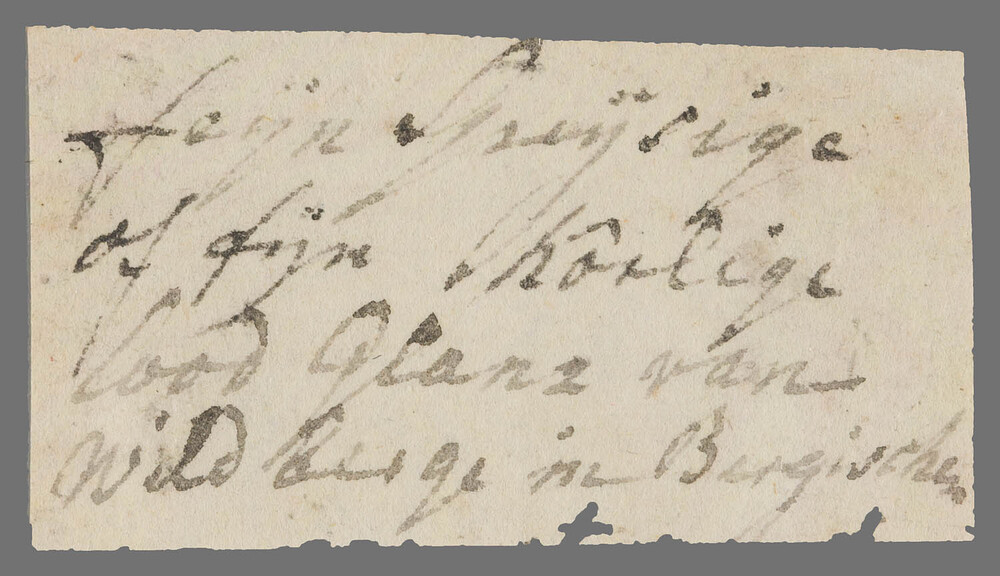 feijn Speijsige
of fijn Körlige
lood Glanz van
wild berge in Bergischen